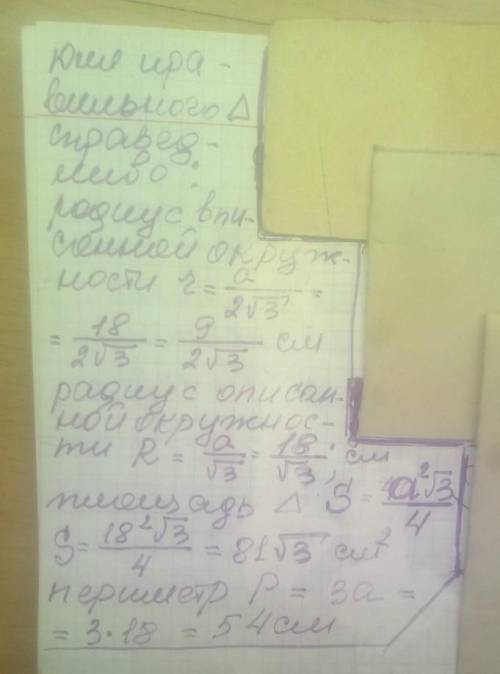 для пра-
вильного Δ
справед-
ливо:
радиус впи-
санной окруж-
ности r = a/(2√3) =
= 18/(2√3) = 9/(2√3) см
радиус описан-
ной окружнос-
ти R = a/√3 = 18/√3; см
площадь Δ S = a²√3/4
S = 18²√3/4 = 81√3 см²
периметр P = 3a =
= 3·18 = 54 см